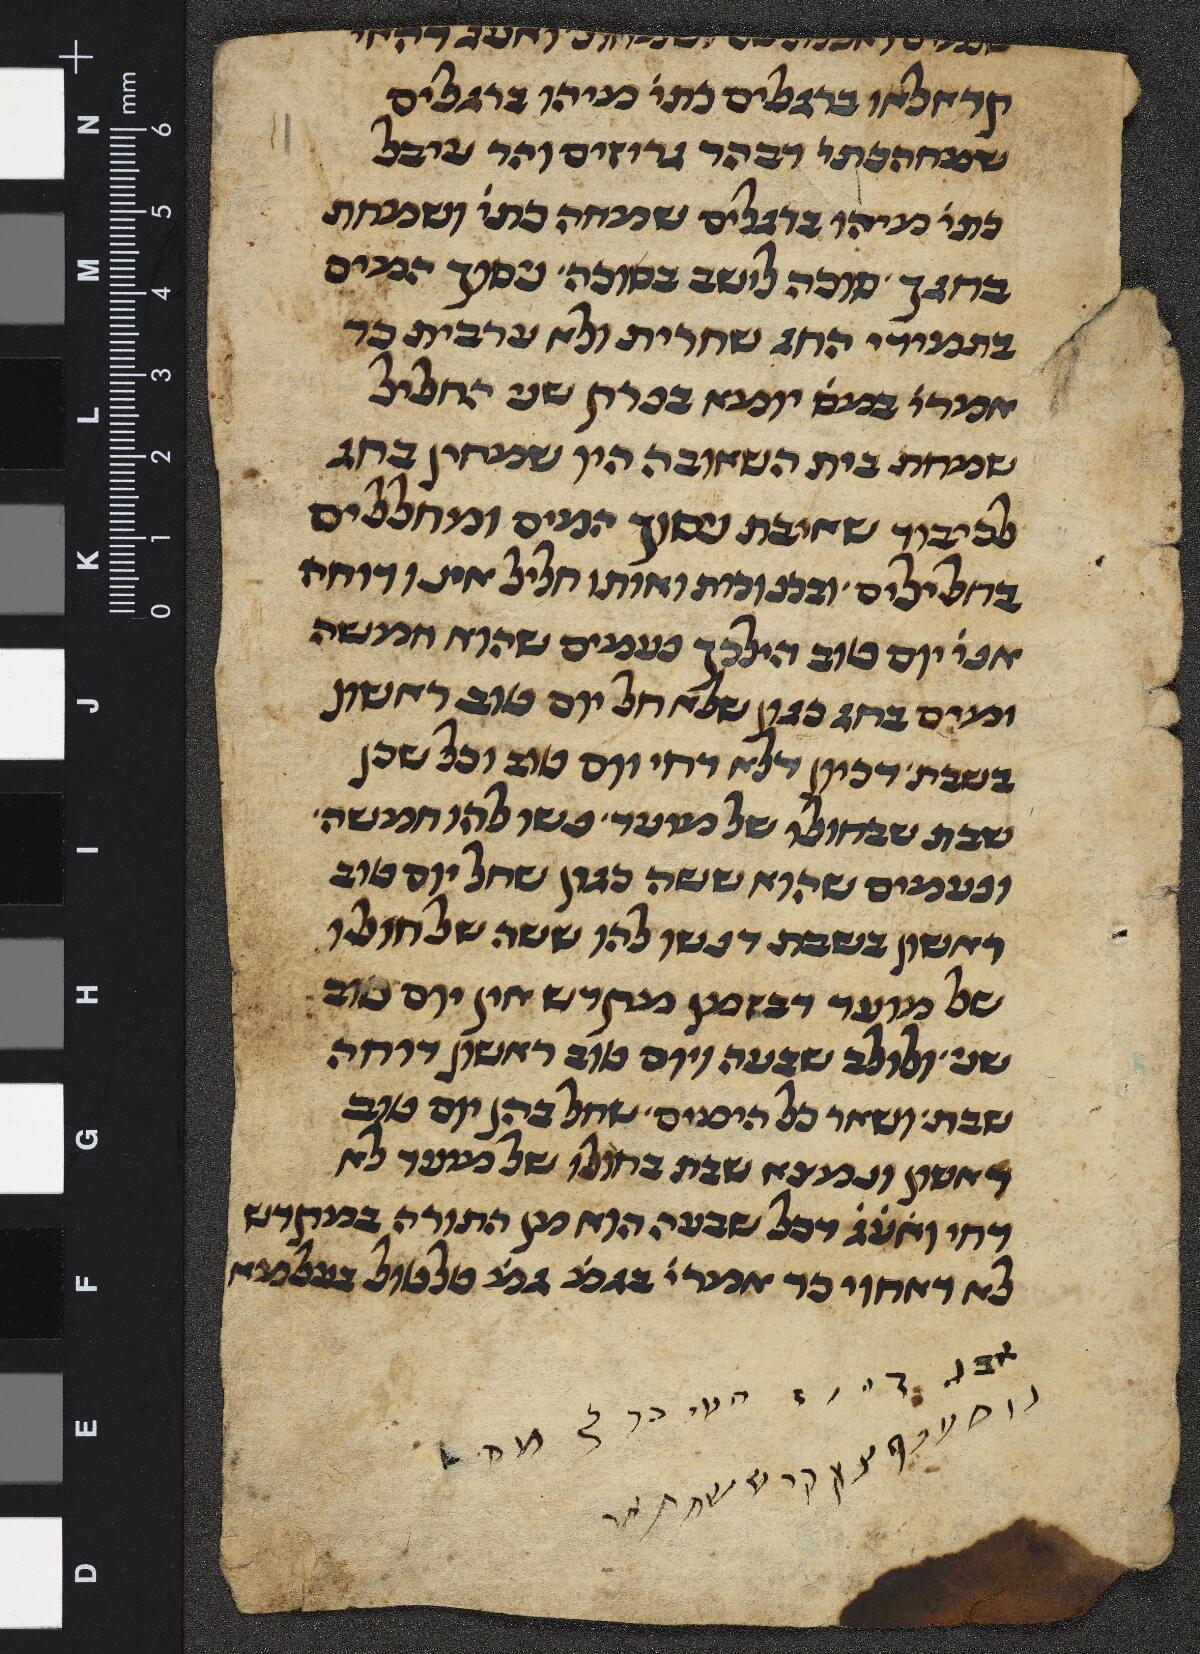 קראלאו ברגלים כתי' מיהו ברגלים
שמחהכתי' דבהר גריזים והר עיבל
כתי' מיהו ברגלים שמחה כתי' ושמחת
בחגך סוכה לישב בסוכה' ניסוך המים
בתמידי החג שחרית ולא ערבית כד
אמרי' במס' יומא בפרק שני החליל
שמחת בית השאובה היו שמחין בחג
לכיבוד שאיבת ניסוך המים ומחללים
בחלילים' ובכנורות ואותו חליל אינו דוחה
אפי' יום טוב הילכך פעמים שהוא חמשה
ימים בחג כגון שלא חל יום טוב ראשון
בשבת' דכיון דלא דחי יום טוב וכל שכן
שבת שבחולו של מועד' פשו להו חמשה'
ופעמים שהוא ששה כגון שחל יום טוב
ראשון בשבת דפשו להו ששה של חולו
של מועד דבזמן מקדש אין יום טוב
שני' ולולב שבעה ויום טוב ראשון דוחה
שבת' ושאר כל הימים' שחל בהן יום טוב
ראשון ונמצא שבת בחולו של מועד לא
דחי ואע"ג דכל שבעה הוא מן התורה במקדש
לא דאחוי כד אמרי' בגמ' גמ' טלטול בעלמא
אבג ד ה ו ז